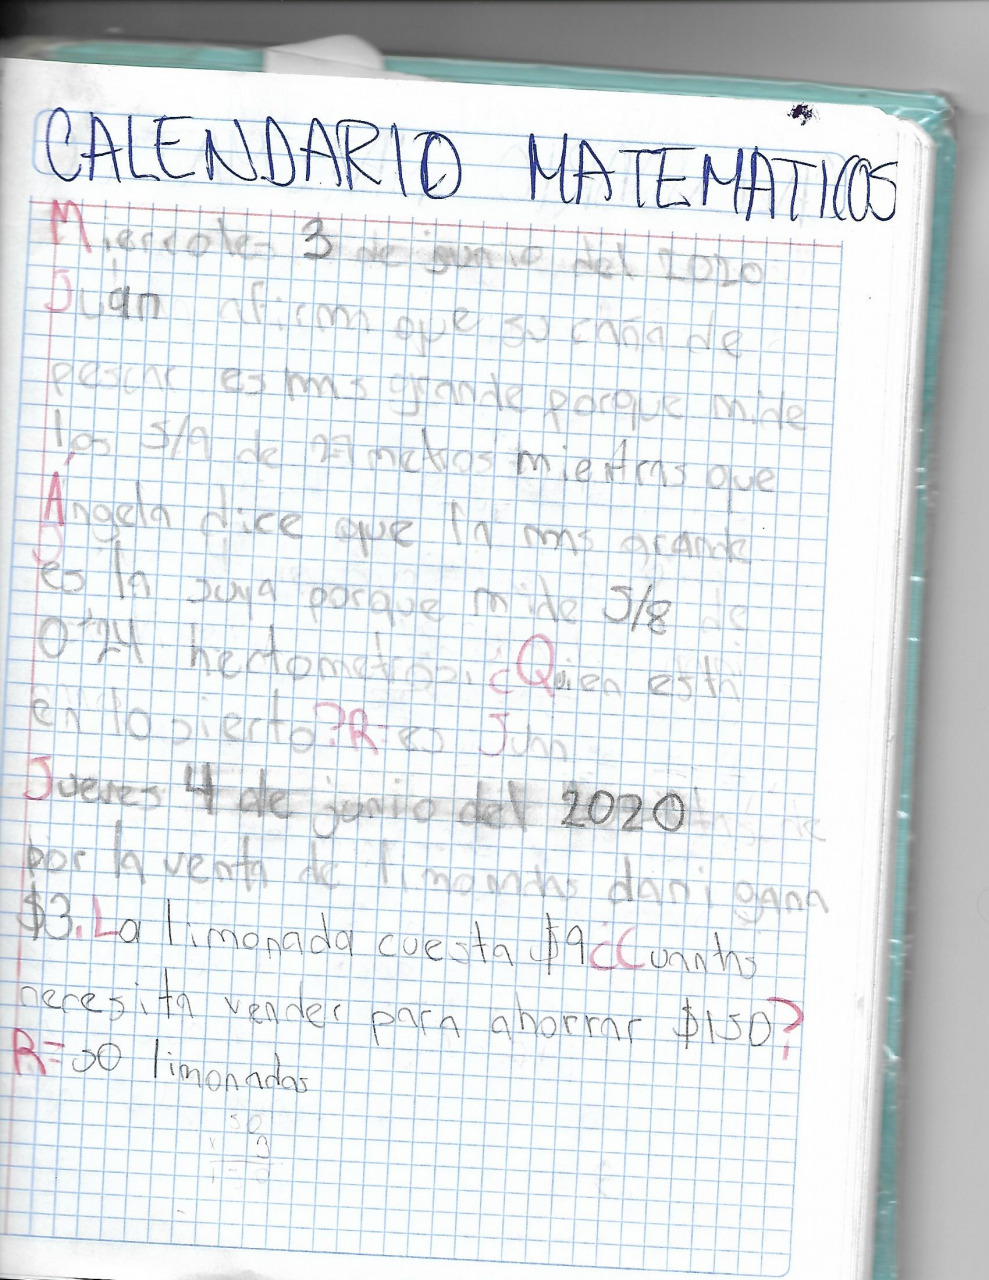 CALENDARIO MATEMATICOS
Miercoles 3 de junio del 2020
Juan afirma que su caña de
pescar es mas grande porque mide
los 5/9 de 27 metros mientras que
Angela dice que la mas grande
es la suya porque mide 5/8 de
0'24 hectometros. ¿Quien esta
en lo sierto? R= es Juan
Jueves 4 de junio del 2020
por la venta de limonadas dani gana
$3. La limonada cuesta $9 ¿Cuantas
necesita vender para ahorrar $150?
R= 50 limonadas
50
x 3
150